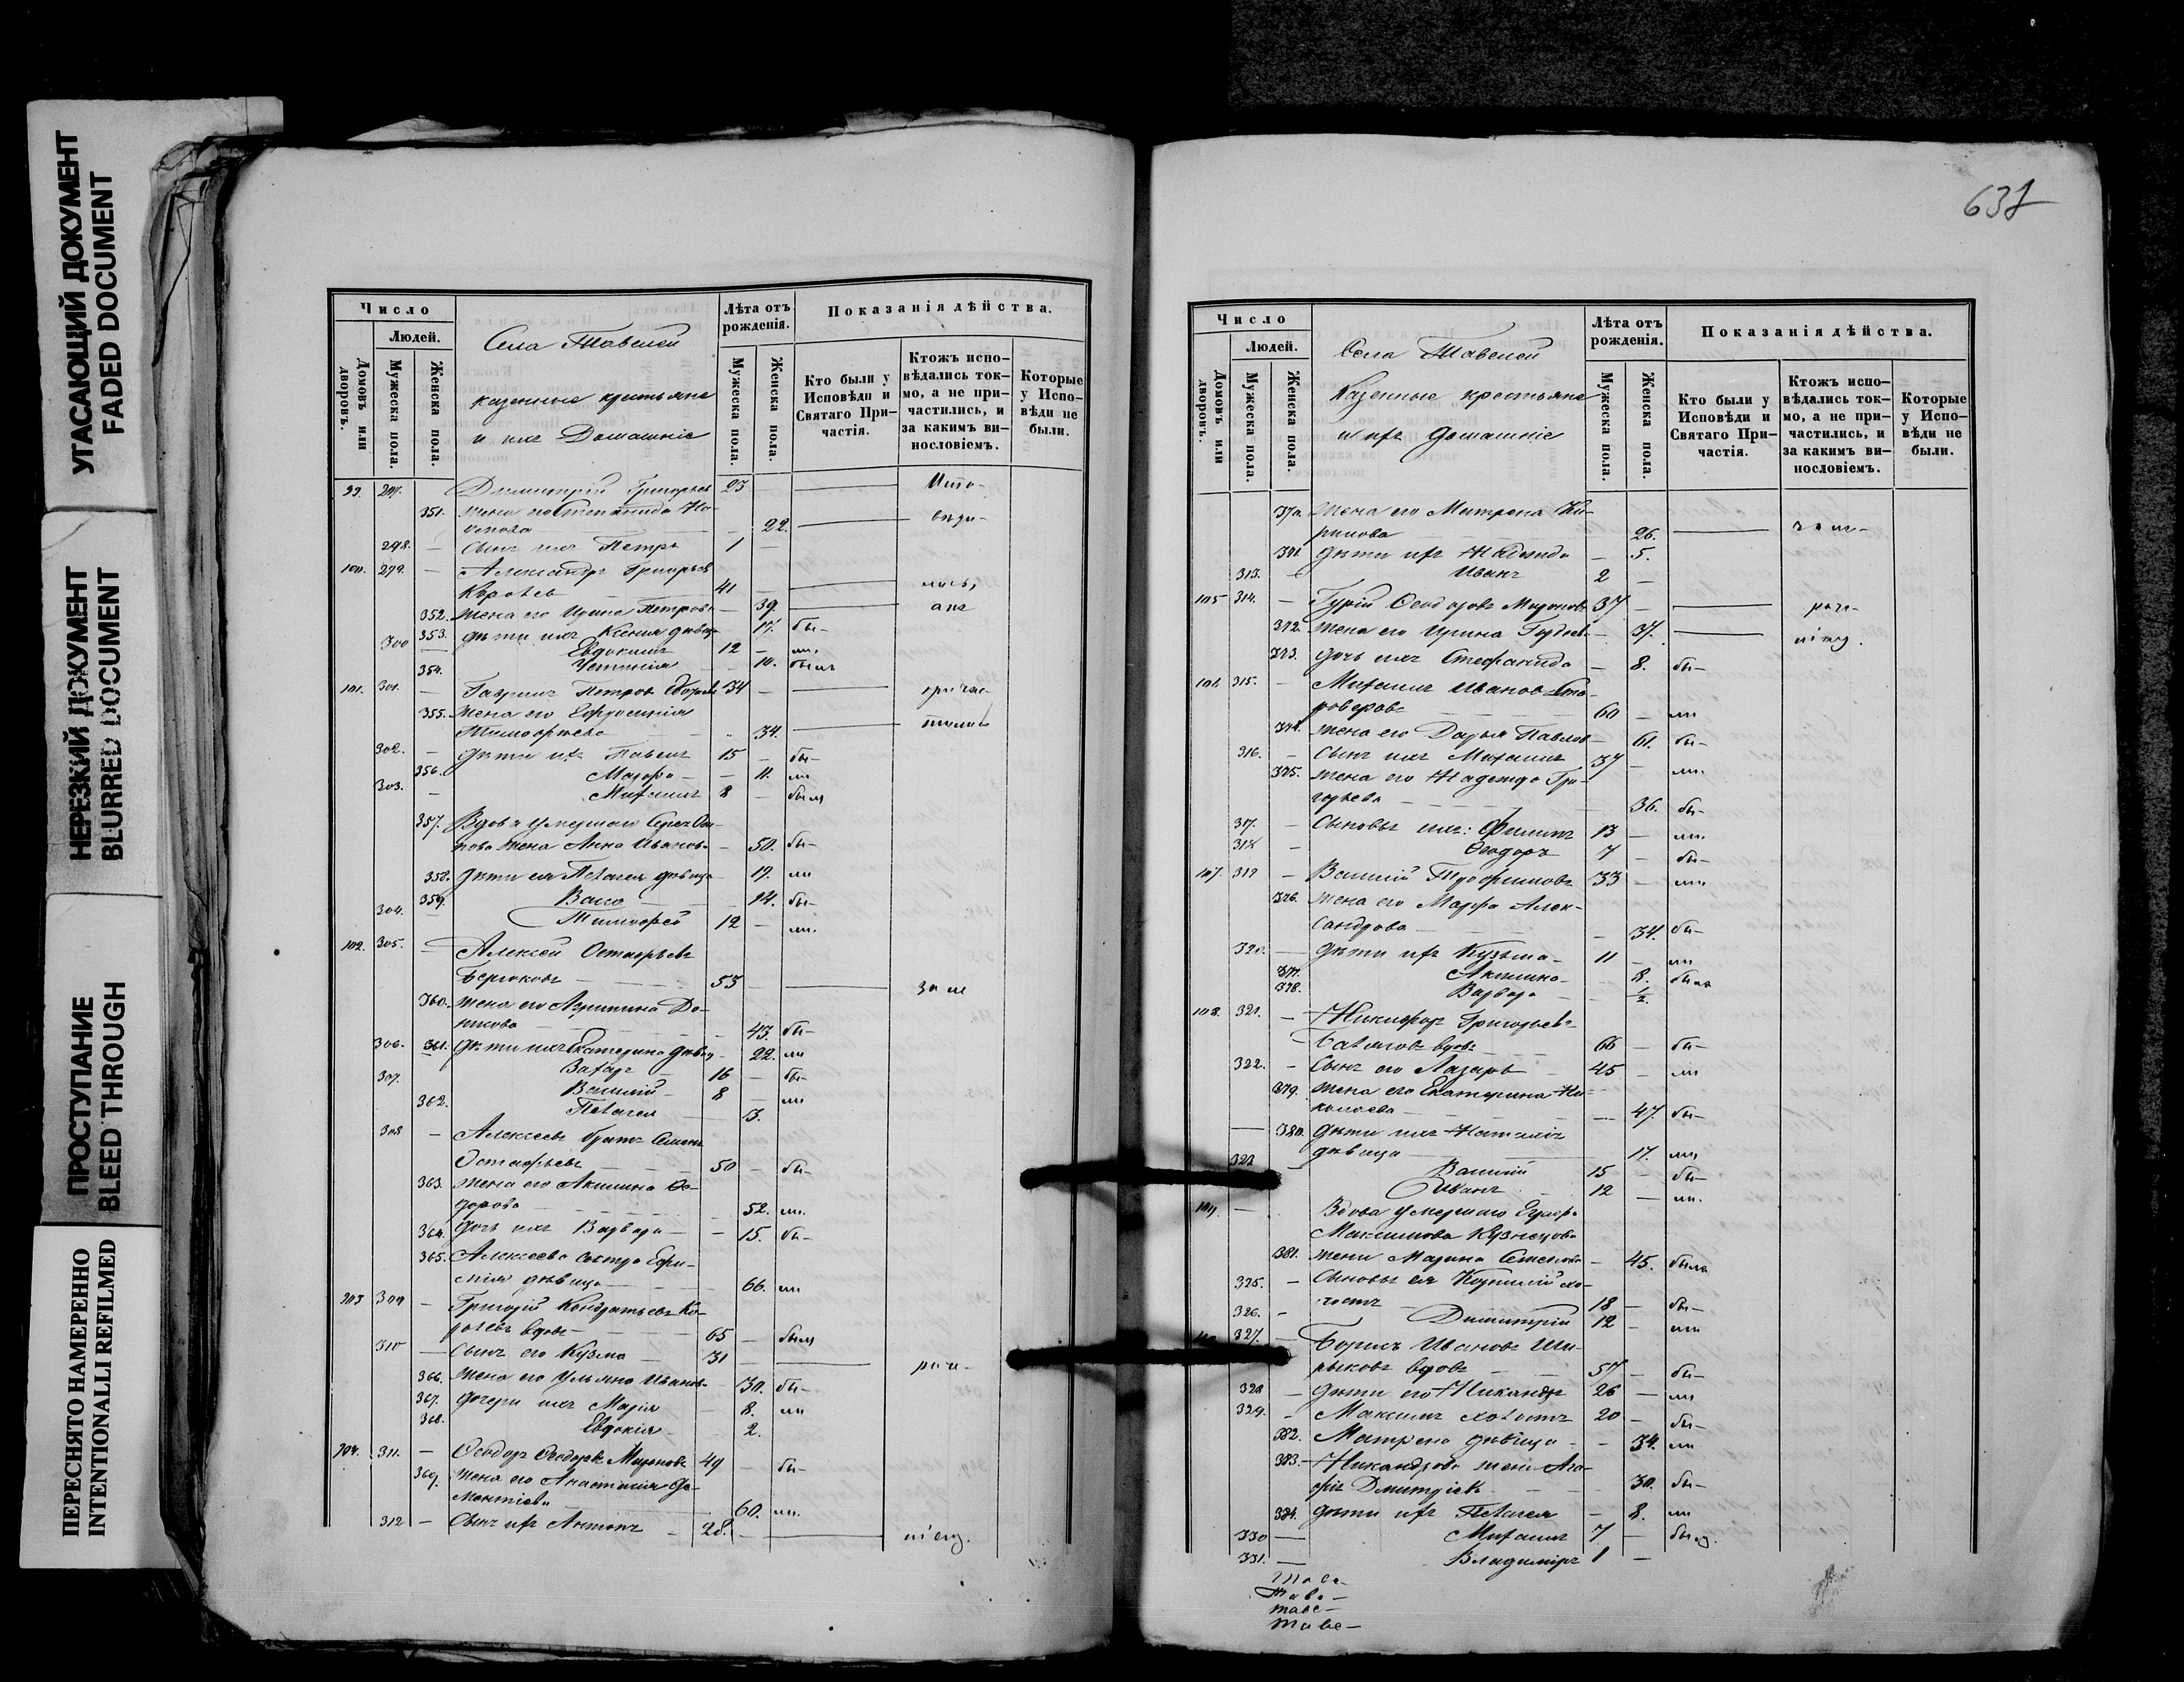 УГАСАЮЩИЙ ДОКУМЕНТ
FADED DOCUMENT
НЕРЕЗКИЙ ДОКУМЕНТ
BLURRED DOCUMENT
ПРОСТУПАНИЕ
BLEED THROUGH
ПЕРЕСНЯТО НАМЕРЕННО
INTENTIONALLI REFILMED
Число
Людей.
Домовъ или дворовъ.
Мужеска пола.
Женска пола.
Села Тавелей
казенные крестьяне
и ихъ Домашніе
Лѣта отъ
рожденія.
Мужеска пола.
Женска пола.
Показанія дѣйства.
Кто были у
Исповѣди и
Святаго При-
частія.
Ктожъ испо-
вѣдались ток-
мо, а не при-
частились, и
за какимъ ви-
нословіемъ.
Которые
у Испо-
вѣди не
были.
99. 297. Димитрій Григорьев 23 Испо-
351. жена его Степанида
22. вѣда-
298. Сынъ ихъ Петръ 1
100. 299. Александръ Григорьев
41 лись,
352. жена его Ирина Петрова 39. а не
353. дѣти ихъ Ксения дѣвица 17. бы-
300 Евдокимъ 12 ли,
354. 10. были
101. 301. Гавриилъ Петров 34 прича-
355. жена его Ефросинія
Тимофеева 34. стились
302. дѣти ихъ Павелъ 15 бы-
356. Марфа 11. ли
303. Михаилъ 8 были
357. Вдова умершаго
жена Анна Иванова 50. бы-
358. дѣти ея Пелагея дѣвица 19. ли
359. Васса 14. бы-
304. Тимофей 12 ли.
102. 305. Алексей Остафьевъ
Бериковъ 53 за не
360. жена его Агрипина
43. бы-
306. 361. дѣти ихъ Екатерина дѣвица 22. ли
Захаръ 16 бы-
307. Василій 8 ли
362. Пелагея 3.
308 Алексеевъ братъ Семенъ
Остафьевъ 50 бы-
363. жена его Акилина Фе-
дорова 52. ли.
364. дочь ихъ Варвара 15. бы-
365. Алексеева сестра Ефи-
мія дѣвица 66. ли
103 309 Григорій Кондратьевъ Ко-
ролевъ вдовъ 65 былъ
310 Сынъ его Кузма 31 ради-
366. жена его Ульяна Иванова 30. бы-
367. дочери ихъ Марія 8. ли
368. Евдокія 2.
104. 311. Феодоръ Феодоровъ Мироновъ 49 бы-
369. жена его Анастасия
60. ли.
312 Сынъ ихъ Антонъ 28.
637
Число
Людей.
Домовъ или дворовъ.
Мужеска пола.
Женска пола.
Села Тавелей
Казенные крестьяне
и ихъ Домашніе
Лѣта отъ
рожденія.
Мужеска пола.
Женска пола.
Показанія дѣйства.
Кто были у
Исповѣди и
Святаго При-
частія.
Ктожъ испо-
вѣдались ток-
мо, а не при-
частились, и
за какимъ ви-
нословіемъ.
Которые
у Испо-
вѣди не
были.
370. жена его Матрена Ки-
рилова 26.
371. дѣти ихъ Надежда 5.
313. Иванъ 2
105 314. Гурій Феодоровъ Мироновъ 37
372. жена его Ирина 37.
373. дочь ихъ Стефанида 8. бы-
106. 315. Михаилъ Ивановъ Ста-
роверовъ 60 ли
374. жена его Дарья Павлова 61. бы-
316. Сынъ ихъ Михаилъ 37 ли.
375. жена его Надежда Гри-
горьева 36. бы-
317. Сыновья ихъ: Филипъ 13 ли.
318 Феодоръ 7 бы-
107. 319 Василій Трофимовъ 33 ли.
376. жена его Марфа Алек-
сандрова 34. бы-
320. дѣти ихъ Кузьма 11 ли
377. Акилина 8. были
378. Варвара 1/2.
108. 321. Никифоръ Григорьевъ
вдовъ 66 бы-
322. Сынъ его Лазарь 45 ли
379. жена его Екатерина Ни-
колаева 47. бы-
380. дѣти ихъ Наталія
дѣвица 17. ли,
323 Василій 15 бы-
Иванъ 12 ли.
109. Вдова умершаго Егора
Максимова Кузнецова
381. жена Марина Семенова 45. была
325. Сыновья ея Корнилій хо-
лостъ 18 бы-
326. Димитрій 12 ли
327. Борисъ Ивановъ Ши-
рыковъ вдовъ 57 бы-
328 дѣти его Никандръ 26 ли
329. Максимъ холостъ 20 бы-
382. Матрена дѣвица 34. ли
383. Никандрова жена Ага-
фія Дмитріева 30. бы-
384. дѣти ихъ Пелагея 8. ли
330 Михаилъ 7 былъ.
331. Владимиръ 1
Таве-
Таве-
таве-
таве-